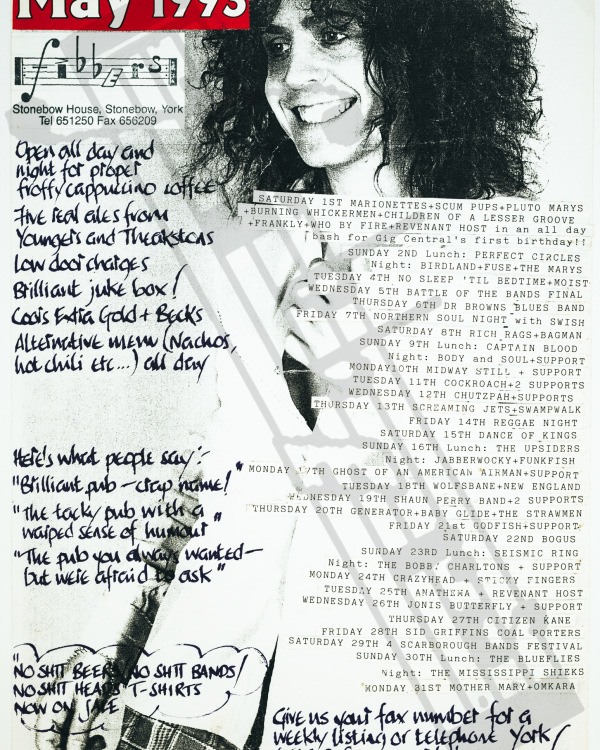 May 1993
fibbers
Stonebow House, Stonebow, York
Tel 651250 Fax 656209
Open all day and
night for proper
froffy cappuccino coffee
Five real ales from
Youngers and Theakstons
Low door charges
Brilliant juke box!
Coors Extra Gold + Becks
Alternative menu (Nachos,
hot chili etc...) all day
Here's what people say:-
"Brilliant pub - crap name!"
"The tacky pub with a
warped sense of humour"
"The pub you always wanted-
but were afraid to ask"
"NO SHIT BEER, NO SHIT BANDS!
NO SHIT HEADS" T-SHIRTS
NOW ON SALE
SATURDAY 1ST MARIONETTES+SCUM PUPS+PLUTO MARYS
+BURNING WHICKERMEN+CHILDREN OF A LESSER GROOVE
+FRANKLY+WHO BY FIRE+REVENANT HOST in an all day
bash for Gig Central's first birthday!!
SUNDAY 2ND Lunch: PERFECT CIRCLES
Night: BIRDLAND+FUSE+THE MARYS
TUESDAY 4TH NO SLEEP 'TIL BEDTIME+MOIST
WEDNESDAY 5TH BATTLE OF THE BANDS FINAL
THURSDAY 6TH DR BROWNS BLUES BAND
FRIDAY 7TH NORTHERN SOUL NIGHT with SWISH
SATURDAY 8TH RICH RAGS+BAGMAN
SUNDAY 9TH Lunch: CAPTAIN BLOOD
Night: BODY and SOUL+SUPPORT
MONDAY10TH MIDWAY STILL + SUPPORT
TUESDAY 11TH COCKROACH+2 SUPPORTS
WEDNESDAY 12TH CHUTZPAH+SUPPORTS
THURSDAY 13TH SCREAMING JETS+SWAMPWALK
FRIDAY 14TH REGGAE NIGHT
SATURDAY 15TH DANCE OF KINGS
SUNDAY 16TH Lunch: THE UPSIDERS
Night: JABBERWOCKY+FUNKFISH
MONDAY 17TH GHOST OF AN AMERICAN AIRMAN+SUPPORT
TUESDAY 18TH WOLFSBANE+NEW ENGLAND
WEDNESDAY 19TH SHAUN PERRY BAND+2 SUPPORTS
THURSDAY 20TH GENERATOR+BABY GLIDE+THE STRAWMEN
FRIDAY 21st GODFISH+SUPPORT
SATURDAY 22ND BOGUS
SUNDAY 23RD Lunch: SEISMIC RING
Night: THE BOBBY CHARLTONS + SUPPORT
MONDAY 24TH CRAZYHEAD + STICKY FINGERS
TUESDAY 25TH ANAHEMA + REVENANT HOST
WEDNESDAY 26TH JONIS BUTTERFLY + SUPPORT
THURSDAY 27TH CITIZEN KANE
FRIDAY 28TH SID GRIFFINS COAL PORTERS
SATURDAY 29TH 4 SCARBOROUGH BANDS FESTIVAL
SUNDAY 30TH Lunch: THE BLUEFLIES
Night: THE MISSISSIPPI SHIEKS
MONDAY 31ST MOTHER MARY+OMKARA
Give us your fax number for a
weekly listing or telephone York